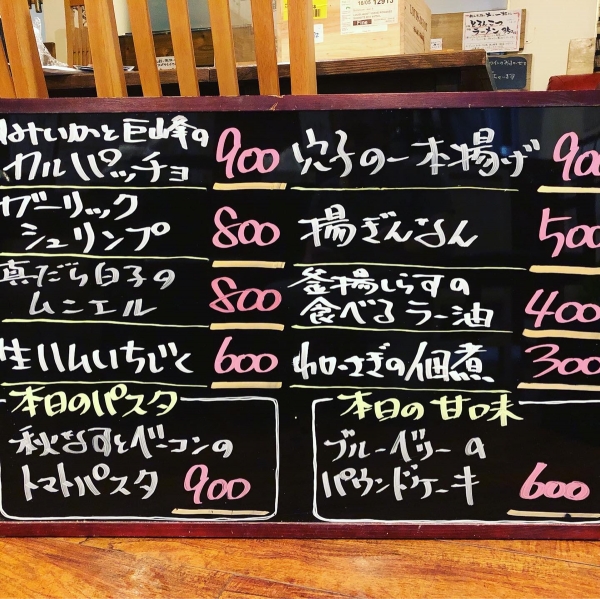 はせいかと巨峰の
カルパッチョ 900
ガーリック
シュリンプ 800
真だら白子の
ムニエル 800
生ハムいちじく 600
本日のパスタ
秋なすとベーコンの
トマトパスタ 900
穴子の一本揚げ 900
揚ぎんなん 500
釜揚しらすの
食べるラー油 400
わかさぎの佃煮 300
本日の甘味
ブルーベリーの
パウンドケーキ 600
とろんこつ
ラーメン